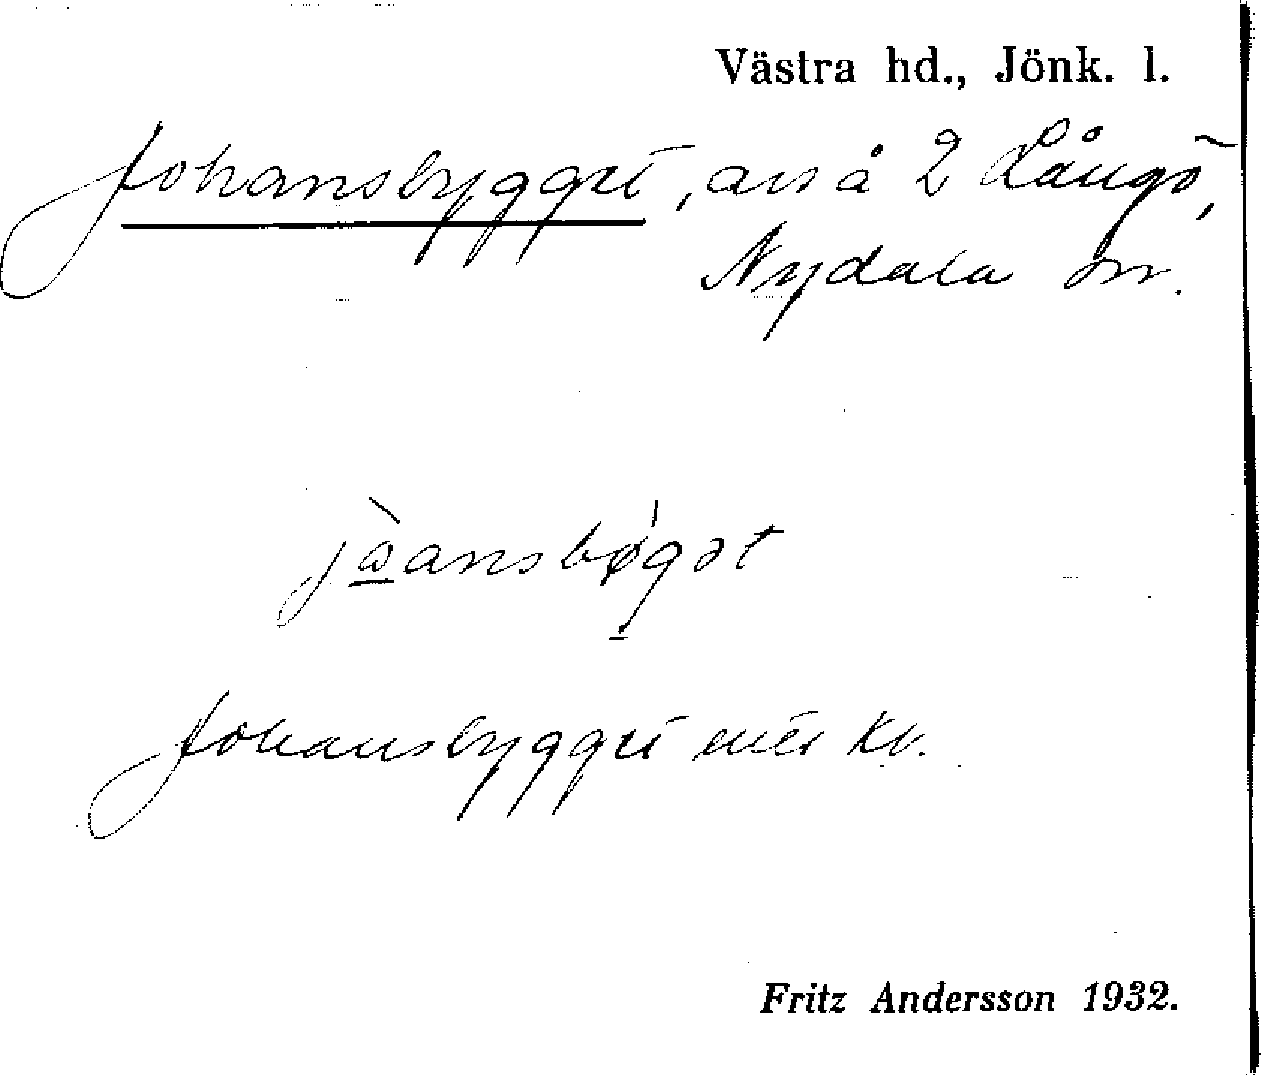 Västra hd., Jönk. l.
Johansbygget, avs å 2 Långö,
Nydala sn.
jòansbǿgət
Johansbygget enl. kb.
Fritz Andersson 1932.